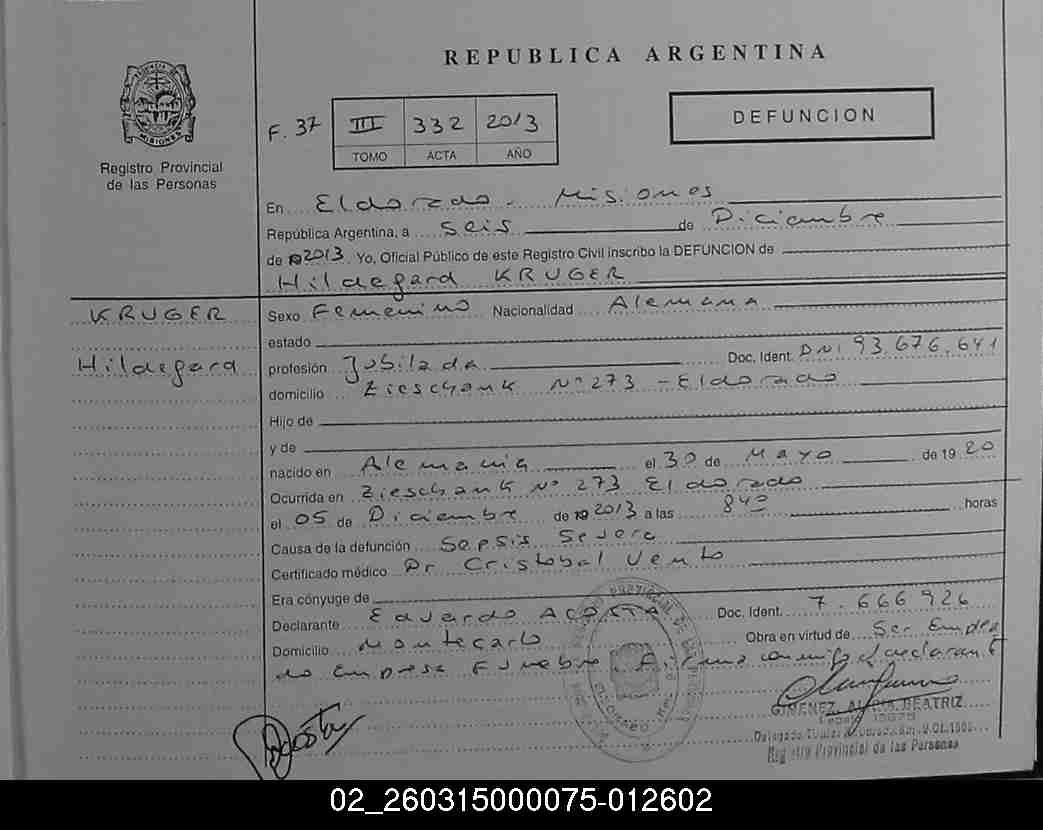 REPUBLICA ARGENTINA
PROVINCIA DE
MISIONES
Registro Provincial
de las Personas
F. 37 III 332 2013
TOMO ACTA AÑO
DEFUNCION
En Eldorado - Misiones
República Argentina, a seis de Diciembre
de 2013. Yo, Oficial Público de este Registro Civil inscribo la DEFUNCION de
Hildegard KRUGER
KRUGER
Hildegard
Sexo Femenino Nacionalidad Alemana
estado
profesión Jubilada Doc. Ident. DNI 93.676.641
domicilio Zieschank Nº 273 - Eldorado
Hijo de
y de
nacido en Alemania el 30 de Mayo de 1920
Ocurrida en Zieschank Nº 273 Eldorado
el 05 de Diciembre de 2013 a las 840 horas
Causa de la defunción Sepsis Severa
Certificado médico Dr Cristobal Vento
Era cónyuge de
Declarante Eduardo ACOSTA Doc. Ident. 7.666926
Domicilio Montecarlo Obra en virtud de Ser Emplea
do Empresa Funebre. Firma conmigo declarante
GIMENEZ, BEATRIZ
Registro Provincial de las Personas
02_260315000075-012602